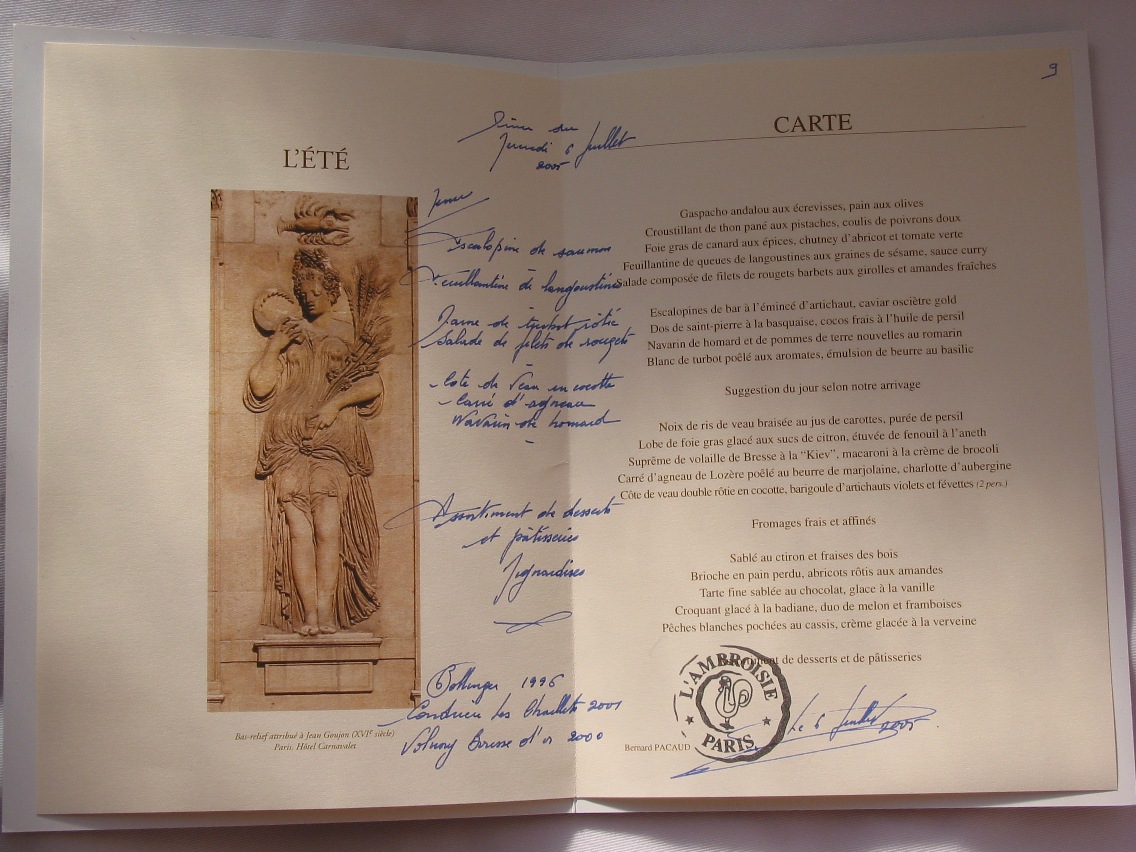 L'ÉTÉ
Bas-relief attribué à Jean Goujon (XVIe siècle)
Paris, Hôtel Carnavalet
du
6 Juillet
2005
Escalopine de saumon
Feuillantine de langoustines
Darne de turbot rôtie
Salade de filets de rougets
- Cote de Veau en cocotte
- Carré d'agneau
Navarin de homard
-
Assortiment de desserts
et pâtisseries
Mignardises
Bollinger 1996
Condrieu Les Chaillets 2001
Volnay Bousse d'or 2000
9
CARTE
Gaspacho andalou aux écrevisses, pain aux olives
Croustillant de thon pané aux pistaches, coulis de poivrons doux
Foie gras de canard aux épices, chutney d'abricot et tomate verte
Feuillantine de queues de langoustines aux graines de sésame, sauce curry
Salade composée de filets de rougets barbets aux girolles et amandes fraîches
Escalopines de bar à l'émincé d'artichaut, caviar osciètre gold
Dos de saint-pierre à la basquaise, cocos frais à l'huile de persil
Navarin de homard et de pommes de terre nouvelles au romarin
Blanc de turbot poêlé aux aromates, émulsion de beurre au basilic
Suggestion du jour selon notre arrivage
Noix de ris de veau braisée au jus de carottes, purée de persil
Lobe de foie gras glacé aux sucs de citron, étuvée de fenouil à l'aneth
Suprême de volaille de Bresse à la “Kiev”, macaroni à la crème de brocoli
Carré d'agneau de Lozère poêlé au beurre de marjolaine, charlotte d'aubergine
Côte de veau double rôtie en cocotte, barigoule d'artichauts violets et févettes (2 pers.)
Fromages frais et affinés
Sablé au ctiron et fraises des bois
Brioche en pain perdu, abricots rôtis aux amandes
Tarte fine sablée au chocolat, glace à la vanille
Croquant glacé à la badiane, duo de melon et framboises
Pêches blanches pochées au cassis, crème glacée à la verveine
de desserts et de pâtisseries
L'AMBROISIE
PARIS
Bernard PACAUD
Le 6 Juillet 2005.